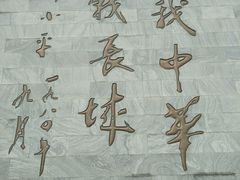 我中華
我長城
小平
一九八四年
九月